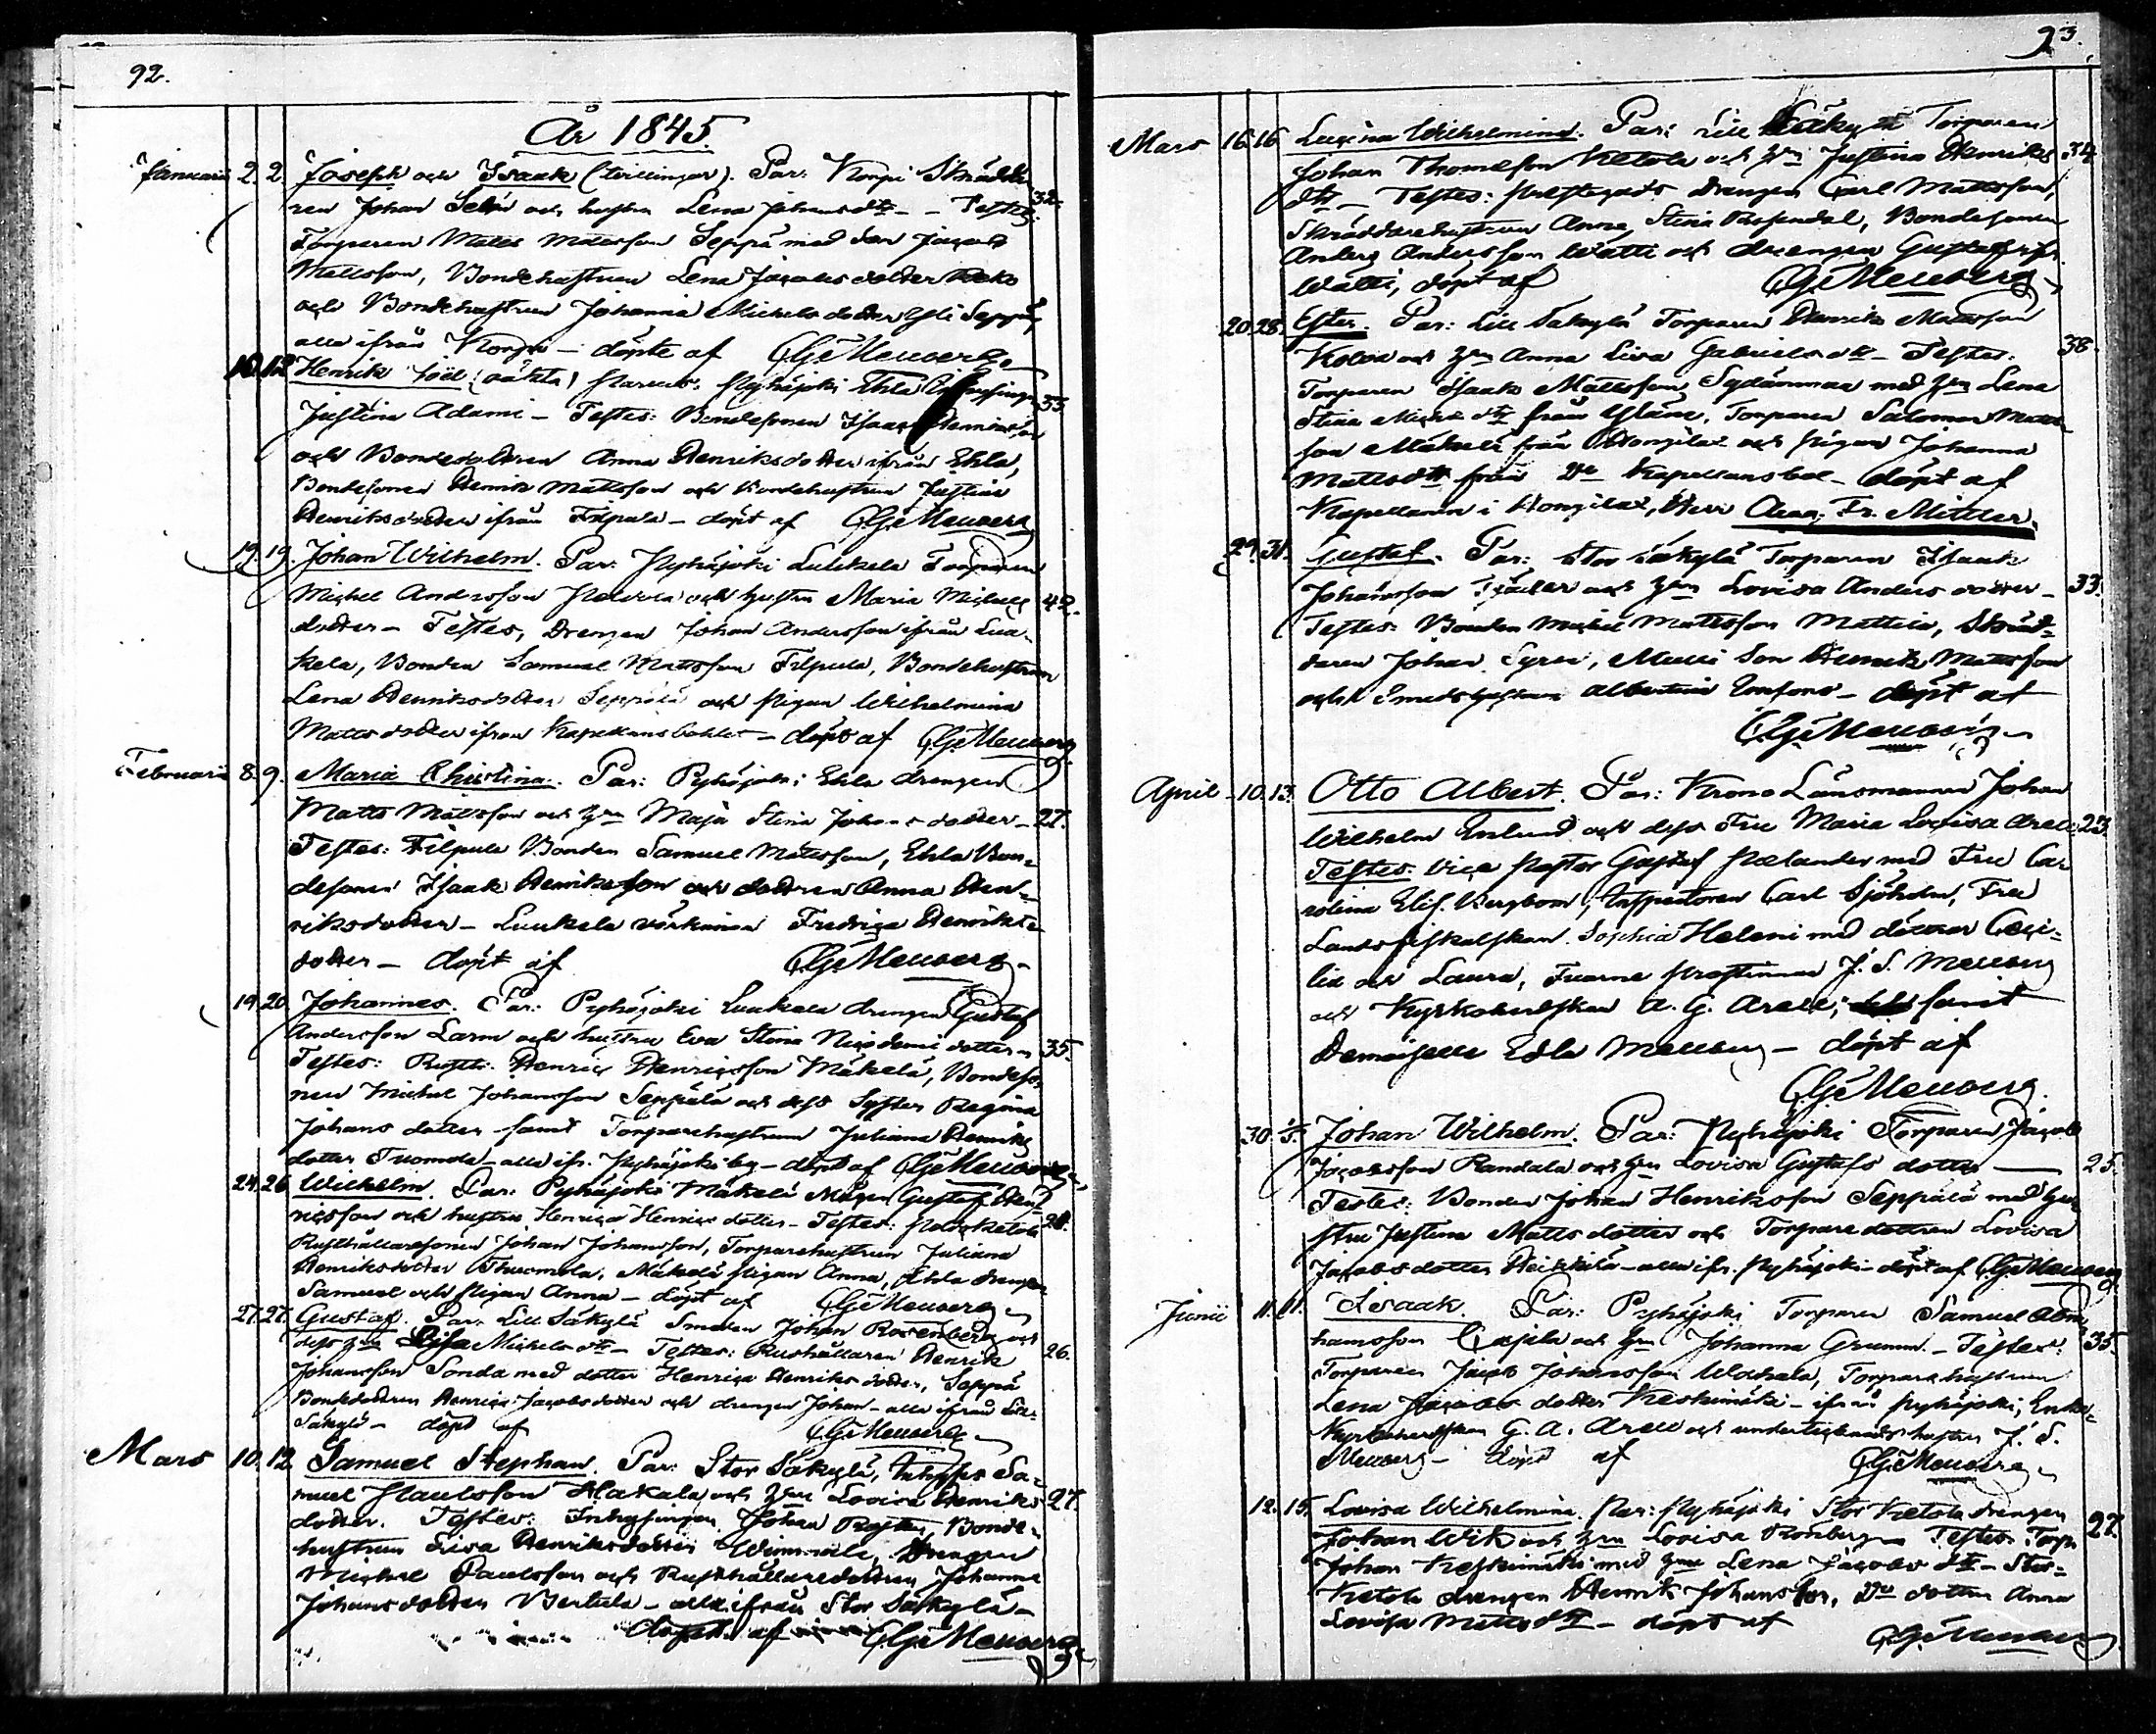 92.
År 1845.
Januarii 2. 2. Joseph och Isaak (tvillingar). Par: Korpi Skrädda-
ren Johan och hustru Lena Johansdtr - Testes: 32.
Torparen Matts Mattsson Seppä med son Jacob
Mattsson, Bondehustrun Lena Jacobsdotter
och Bondehustrun Johanna Michelsdotter Yli Seppä,
alla ifrån Korpi - döpte af CGJ Mellberg
10. 12. Henrik Joël (oäkta) Parens: Pyhäjoki Ehla 33
Justina Adami - Testes: Bondesonen Isaac Henriksson
och Bondedottren Anna Henriksdotter ifrån Ehla,
Bondesonen Henrik Mattsson och Bondehustrun Justina
Henriksdotter ifrån Filpula - döpt af CGJ Mellberg
19. 19. Johan Wilhelm. Par: Pyhäjoki Luukela Torparen
Michel Andersson och hustru Maria Michels 42.
dotter - Testes, Drengen Johan Andersson ifrån Luu-
kela, Bonden Samuel Mattsson Filpula, Bondehustrun
Lena Henriksdotter Seppälä och Pigan Wilhelmina
Mattsdotter ifrån Kapellansbohlet - döpt af CGJ Mellberg
Februarii 8. 9. Maria Christina. Par: Pyhäjoki Ehla drengen
Matts Mattsson och hu Maja Stina Johansdotter - 27.
Testes: Filpula Bonden Samuel Mattsson, Ehla Bon-
desonen Isaak Henriksson och dottren Anna Hen-
riksdotter - Luukela Fredrica Henriks-
dotter - döpt af CGJ Mellberg
19. 20. Johannes. Par: Pyhäjoki Luukela drengen Gustaf
Andersson Larm och hustru Eva Stina Nicodemi dotter - 35.
Testes: Rusth. Henric Henricsson Mäkelä, Bondeso-
nen Michel Johansson Seppälä och dess Syster Regina
Johans dotter - samt Torparehustrun Juliana Henriks
dotter Tuomola - alla ifr. Pyhäjoki by - döpt af CGJ Mellberg
24. 26. Wilhelm. Par: Pyhäjoki Mäkelä Mågen Gustaf Hen-
ricsson och hustru Henrica Henrics dotter - Testes: 28.
Rusthållaresonen Johan Johansson, Torparehustrun Juliana
Henriksdotter Thuomola, Mäkelä Pigan Anna, Ehla drengen
Samuel och Pigan Anna - döpt af CGJ Mellberg
27. 27. Gustaf. Par: Lill Säkylä Smeden Johan Rosenberg och
dess hu Lisa Michelsdtr - Testes: Rusthållaren Henrik 26.
Johansson Sonda med dotter Henrica Henriksdotter, Seppä
Bondedottren Henrica Jacobsdotter och drengen Johan - alla ifrån Lill
Säkylä - döpt af CGJ Mellberg
Mars 10. 12. Samuel Stephan. Par: Stor Säkylä, Inhyses Sa-
muel Paulsson Hakala och hu Lovisa Henriks 27.
dotter. Testes: Inhysingen Johan, Bonde-
hustrun Lisa Henriksdotter, Drengen
Michel Paulsson och Rusthållaredottren Johanna
Johansdotter Bertula - alla ifrån Stor Säkylä -
döpt af CGJ Mellberg
93.
Mars 16. 16. Lucina Wilhelmina. Par: Lill Säkylä Torparen
Johan Thomasson Ketola och hu Justina Henriks- 34.
dtr - Testes: Prestgårds drengen Carl Mattsson,
Skräddarehustrun Anna Stina, Bondesonen
Anders Andersson Watti och drengen Gustaf
Watti, döpt af CGJ Mellberg
20. 28. Ester. Par: Lill Säkylä Torparen Henrik Mattsson
och hu Anna Lisa Gabrielsdtr - Testes. 38.
Torparen Isaak Mattsson Sydänmaa med hu Lena
Stina dtr från Yläne, Torparen Salomon Matts-
son Mäkelä från och Pigan Johanna
Mattsdtr från Do Kapellansbol - döpt af
Kapellanen i, Herr
29. 31. Gustaf. Par: Stor Säkylä Torparen Isaak
Johansson och hu Lovisa Anders dotter - 33.
Testes: Bonden Michel Mattsson Mattila, Skräd-
daren Johan, son Henrik Mattsson
och Smedshustrun Albertina - döpt af
CGJ Mellberg
April 10. 13. Otto Albert. Par: Krono Länsmannen Johan
Wilhelm Enlund och dess Fru Maria Lovisa Arell 23.
Testes: Vice Pastor Gustaf Pælander med Fru Ca-
rolina Elis. Bergbom, Inspectoren Carl Sjöholm, Fru
Landsfiskalskan Sophia Heleni med döttrar Ceci-
lia och Laura, Fruarne Prostinnan J. S. Mellberg
och Kyrkoherdskan A. G. Arell, samt
Demoiselle Edla Mellberg - döpt af
CGJ Mellberg.
30. Johan Wilhelm. Par: Pyhäjoki Torparen Jacob
Jacobsson Randala och hu Lovisa Gustafs dotter — 25.
Testes: Bonden Johan Henriksson Seppälä med hu-
stru Justina Matts dotter och Torparedottren Lovisa
Jacobsdotter Heikkilä - alla ifr. Pyhäjoki - döpt af CGJ Mellberg
Junii 11. 11. Isaak. Par: Pyhäjoki Torparen Samuel Abra-
hamsson och hu Johanna Grumm. - Testes: 35.
Torparen Jacob Johansson, Torparehustrun
Lena Jacobs dotter Keskimäki - ifrån Pyhäjoki, Enke-
Kyrkoherdskan G. A. Arell och undertecknads hustru J. S.
Mellberg - döpt af CGJ Mellberg
12. 15. Lovisa Wilhelmina. Par: Pyhäjoki Stor Ketola drengen
Johan Wik och hu Lovisa - Testes: Torp. 27.
Johan Keskimäki med hu Lena Jacobs dtr - Stor-
Ketola drengen Henrik Johansson, Do dotter Anna
Lovisa Mattsdtr - döpt af CGJ Mellberg